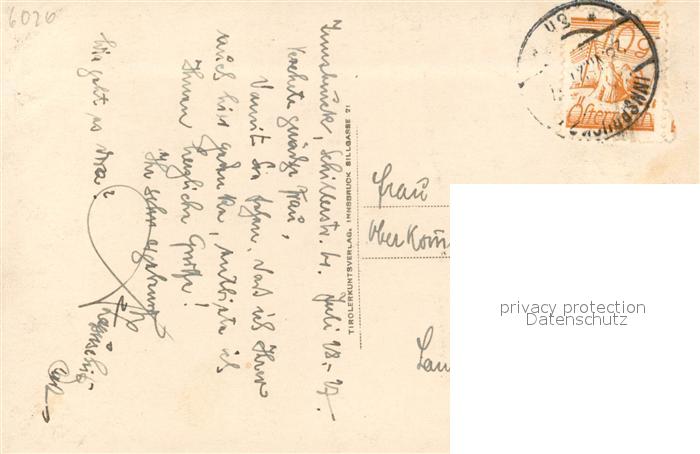 6020
Innsbruck, Schillerstr. Juli 28. 27.
Verehrte gnädige Frau,
Damit Sie sehen, daß ich Ihrer
auch hier gedenke, entbiete ich
Ihnen herzliche Grüße!
Ihr sehr ergebener
Wie geht es
TIROLERKUNSTVERLAG, INNSBRUCK SILLGASSE 21
Frau
Oberkom
Lan
INNSBRUCK
10g
Österreich
privacy protection
Datenschutz